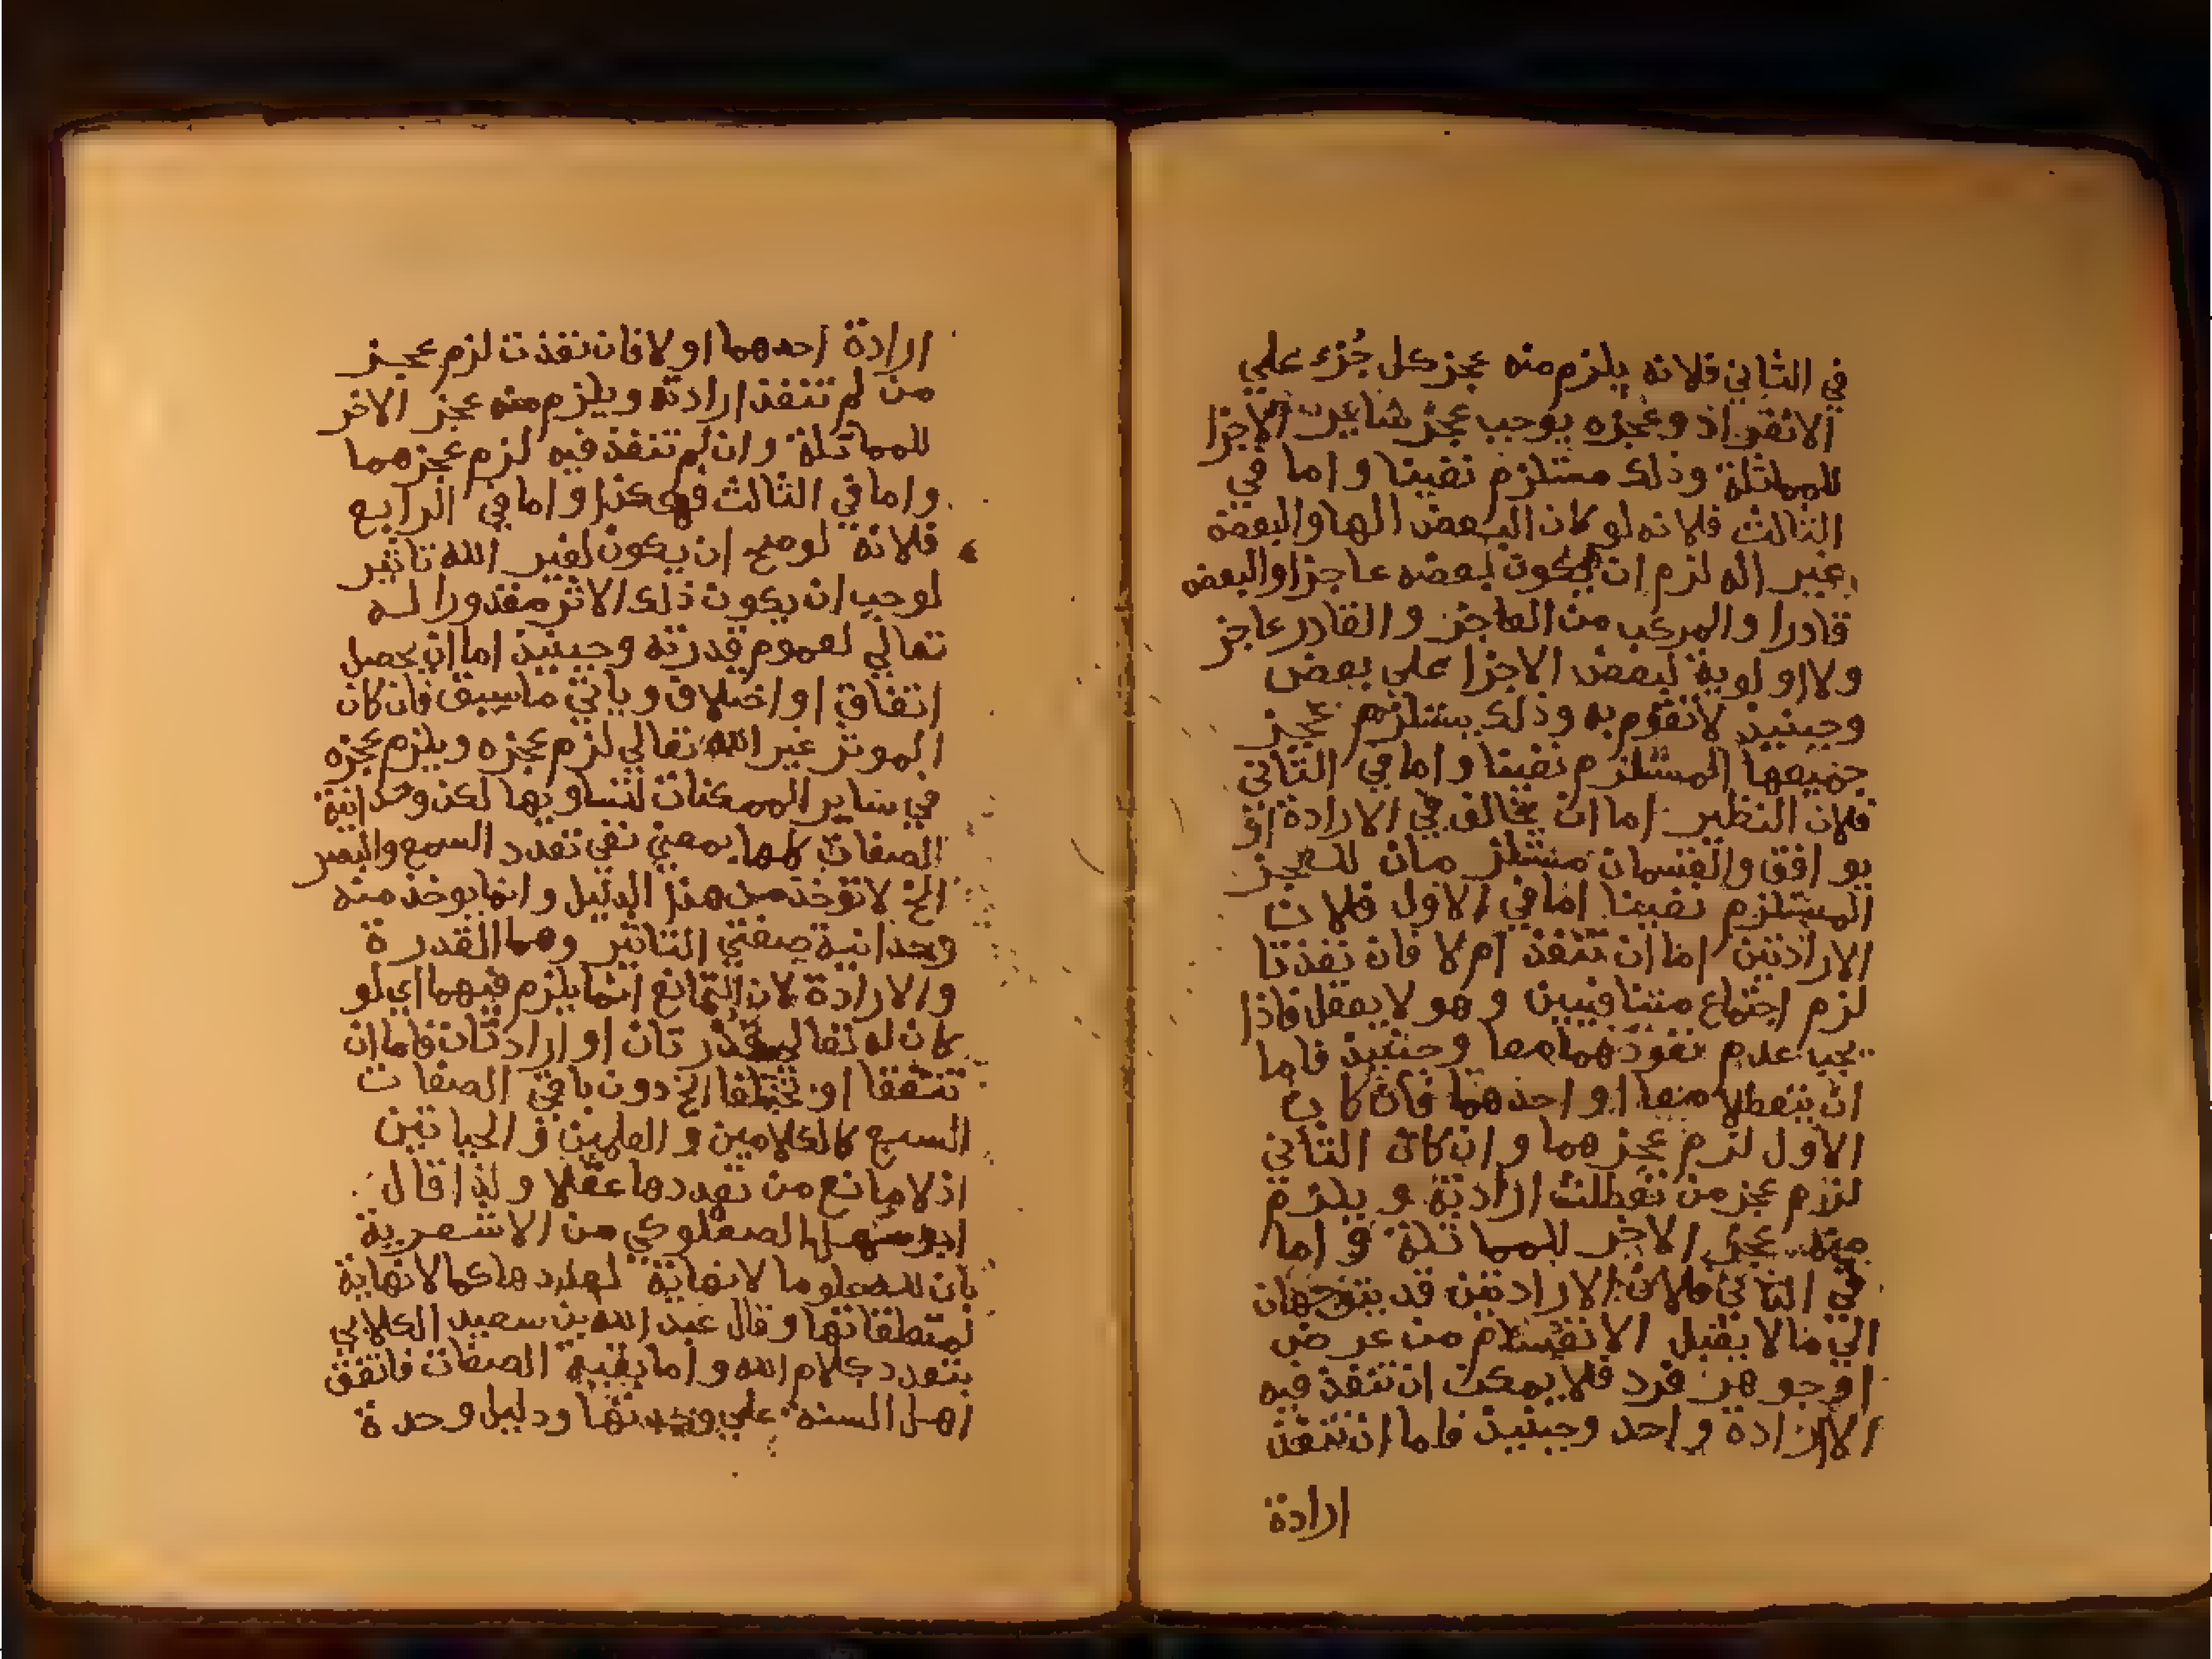 في الثاني فلانه يلزم منه عجز كل جزء علي
الانفراد وعجزه يوجب عجز سايرت الاجزا
للمماثلة وذلك مستلزم نفينا واما في
الثالث فلانه لو كان البعض الها والبعضه
غير اله لزم ان يكون بعضه عاجزا والبعض
قادرا والمركب من العاجز والقادر عاجز
ولا اولوية لبعض الاجزا علي بعض
وحينيذ لا تقوم به وذلك يستلزم عجز
جميعها المستلزم نفينا واما في الثاني
فلان النظير اما ان يخالف في الارادة او
يوافق والقسمان مستلزمان للعجز
المستلزم نفينا اما في الاول فلان
الارادتين اما ان تنفذ ام لا فان نفذتا
لزم اجتماع متنافيين وهو لا يعقل فاذا
يجب عدم نفوذهما معا وحينيذ فاما
ان يتعطلا معا او احدهما فان كان
الاول لزم عجزهما وان كان الثاني
لزم عجز من تعطلت ارادته ويلزم
منه عجز الاخر للمماثلة واما
في الثاني فلان الارادتين قد يتوجهان
الي ما لا يقبل الانقسام من عرض
او جوهر فرد فلا يمكن ان تنفذ فيه
الا ارادة واحد وحينيذ فاما ان تنفذ
ارادة
ارادة احدهما او لا فان نفذت لزم عجز
من لم تنفذ ارادته ويلزم منه عجز الاخر
للمماثلة وان لم تنفذ فيه لزم عجزهما
واما في الثالث فهكذا واما في الرابع
فلانه لو صح ان يكون لغير الله تاثير
لوجب ان يكون ذلك الاثر مقدورا له
تعالي لعموم قدرته وحينيذ اما ان يحصل
اتفاق او اختلاف وياتي ما سبق فان كان
الموثر غير الله تعالي لزم عجزه ويلزم عجزه
في ساير الممكنات لتساويها لكن وحدانية
الصفات كلها بمعني نفي تعدد السمع والبصر
الخ لا توخذ من هذا الدليل وانما يوخذ منه
وحدانية صفتي التاثير وهما القدرة
والارادة لان التمانع انما يلزم فيهما اي لو
كان له تعالي قدرتان او ارادتان فاما ان
تتفقا او تختلفا الخ دون باقي الصفات
السبع كالكلامين والعلمين والحياتين
اذ لا مانع من تعددها عقلا ولذا قال
ابو سهل الصعلوكي من الاشعرية
بان لله علوما لا نهاية لعددها كما لا نهاية
لمتعلقاتها وقال عبد الله بن سعيد الكلابي
بتعدد كلام الله واما بقية الصفات فاتفق
اهل السنة علي وحدتها ودليل وحدة